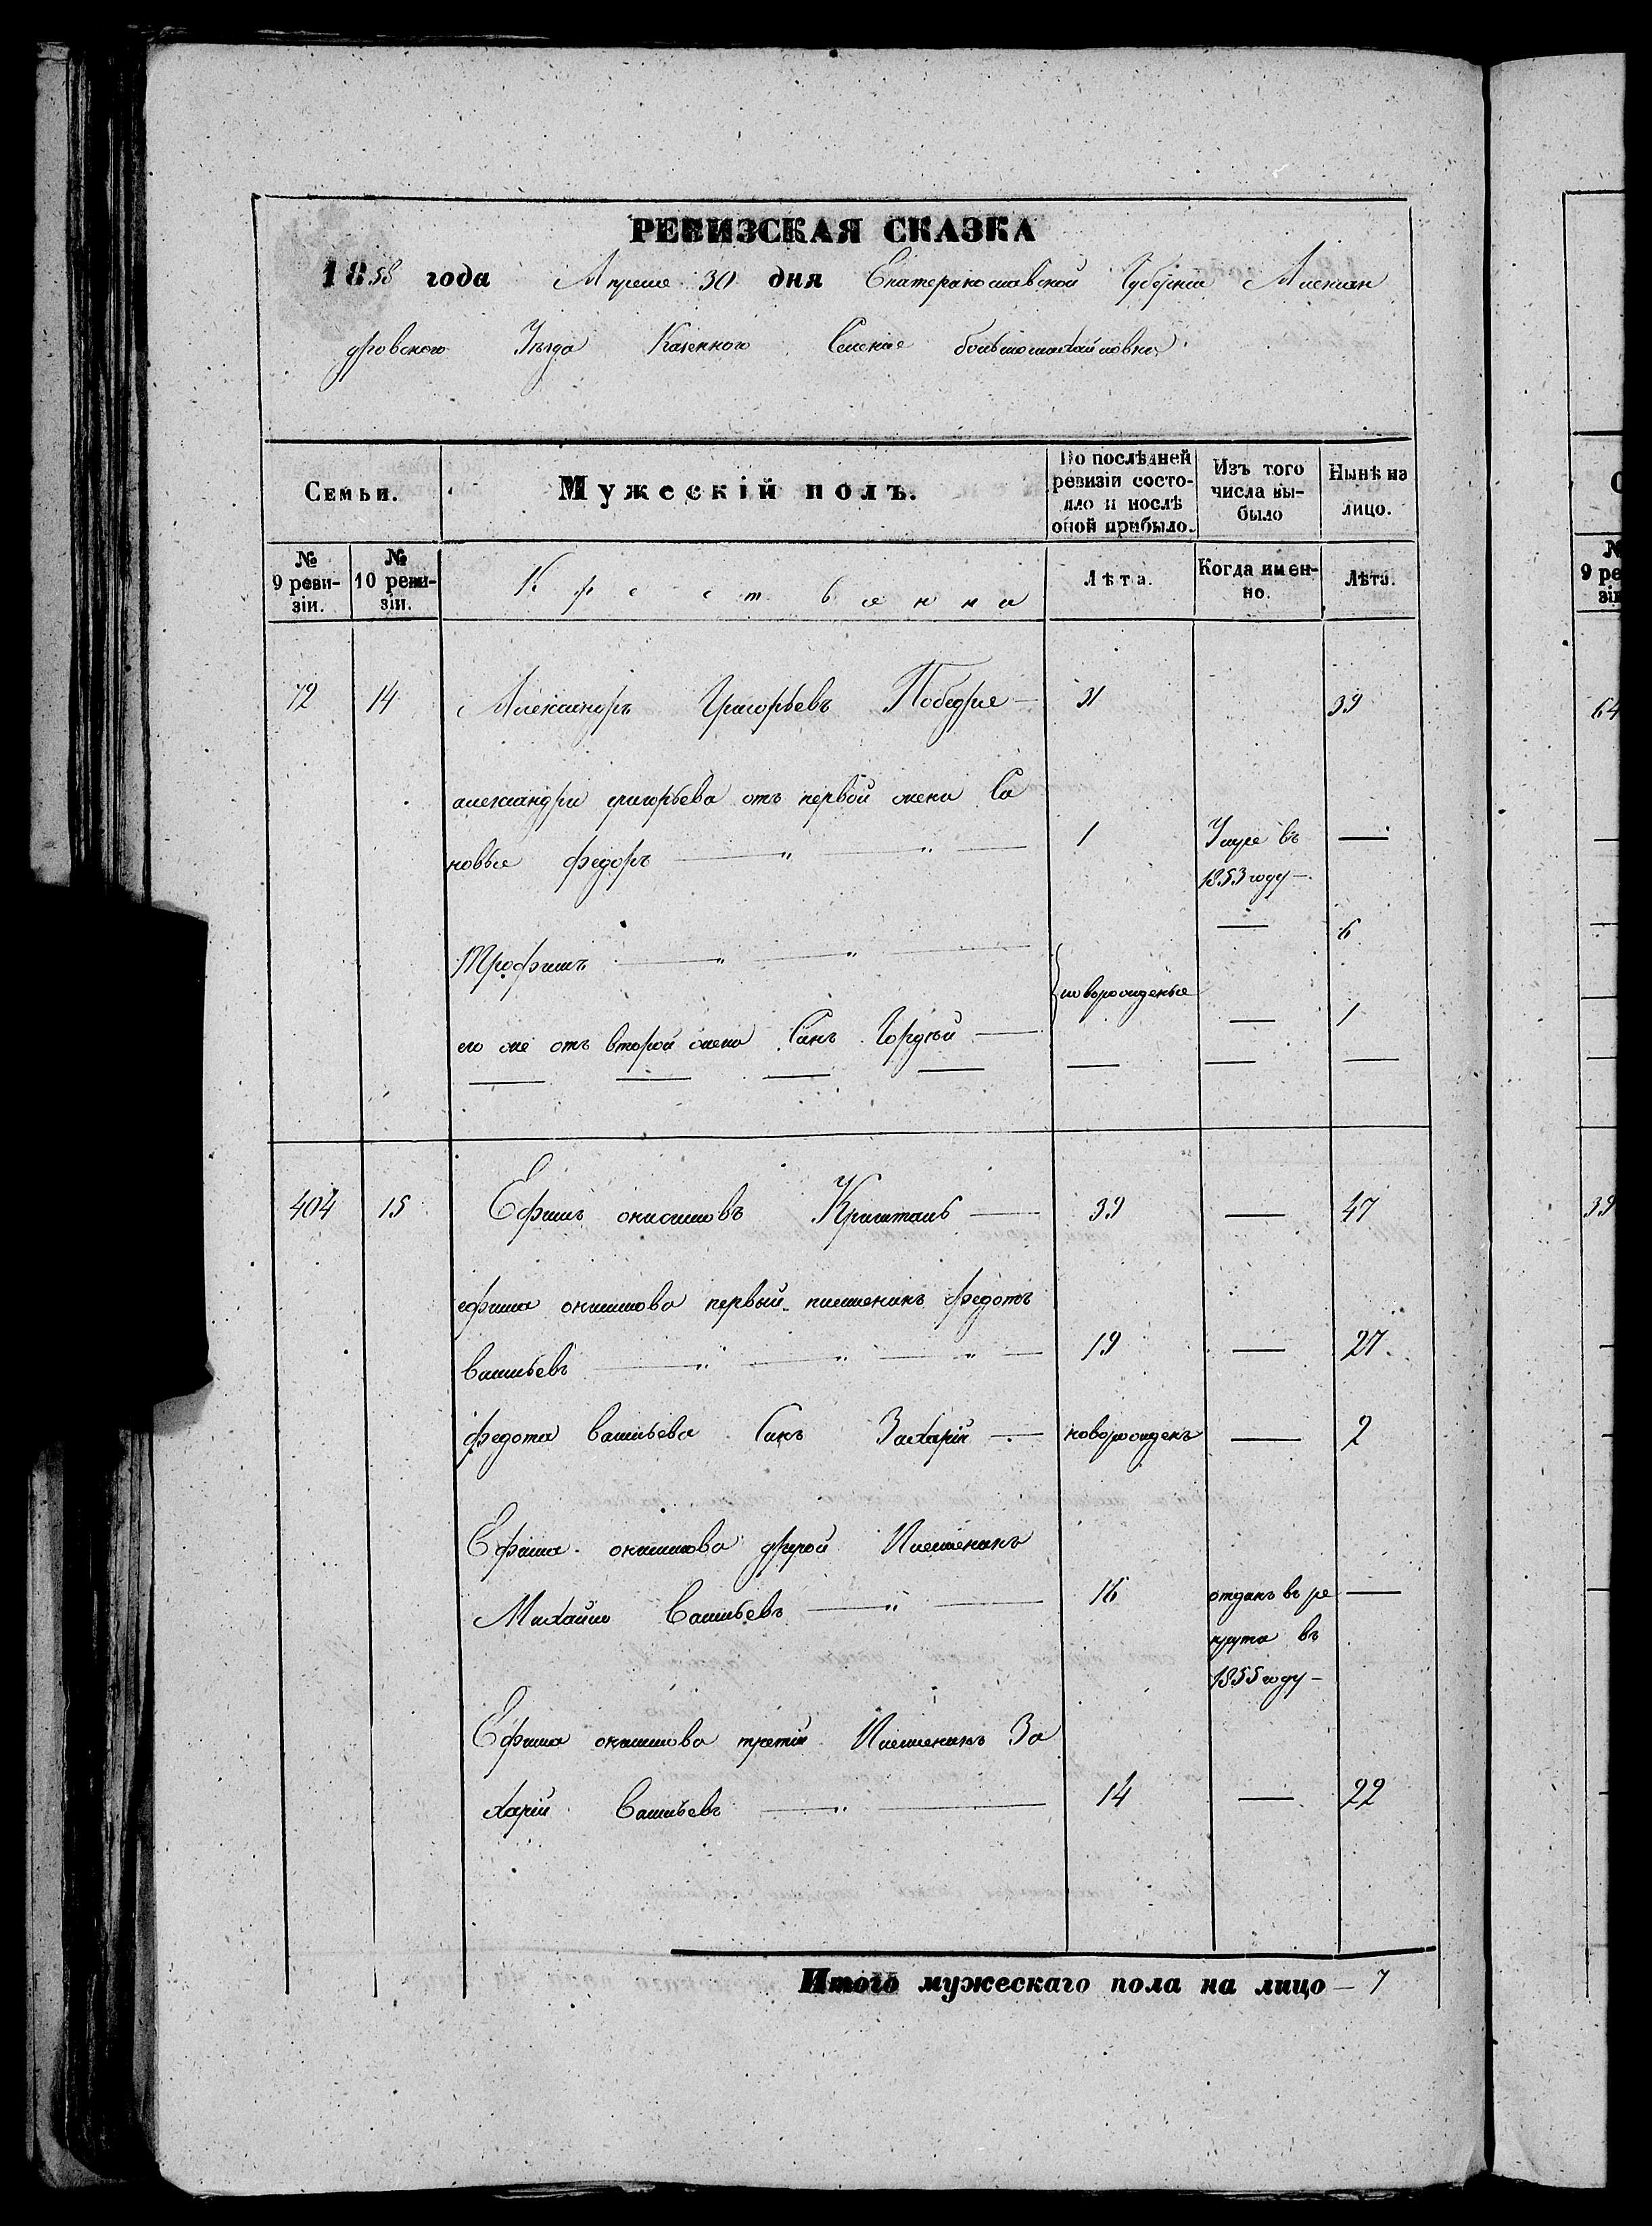 РЕВИЗСКАЯ СКАЗКА
1858 года Апреля 30 дня Екатеринославской Губерніи Алексан
дровского Уезда Казенного Селенія большомихайловки
Семьи. Мужескій полъ. По послѣдней ревизіи состояло и послѣ оной прибыло. Изъ того числа выбыло Нынѣ на лицо.
№ 9 ревизіи. № 10 ревизіи. Крестьяни Лѣта. Когда именно. Лѣта.
72 14 Александръ Григорьевъ 31 39
александра григорьева отъ первой жени Си
новье федоръ 1 Умре въ
1853 году
Трофимъ 6
новорожденые
его же отъ второй жени Синъ Гордѣй 1
404 15 Ефимъ онисимовъ Кришталь 39 47
ефима онисимова первый племеникъ федотъ
васильевъ 19 27
федота васильева Синъ Захарій новорожденъ 2
Ефима онисимова другой Племеникъ
Михайло Васильевъ 16 отданъ въ ре
крута въ
1855 году
Ефима онисимова третій Племеникъ За
харій Васильевъ 14 22
Итого мужескаго пола на лицо 7
64
39
№
9 ре
зі